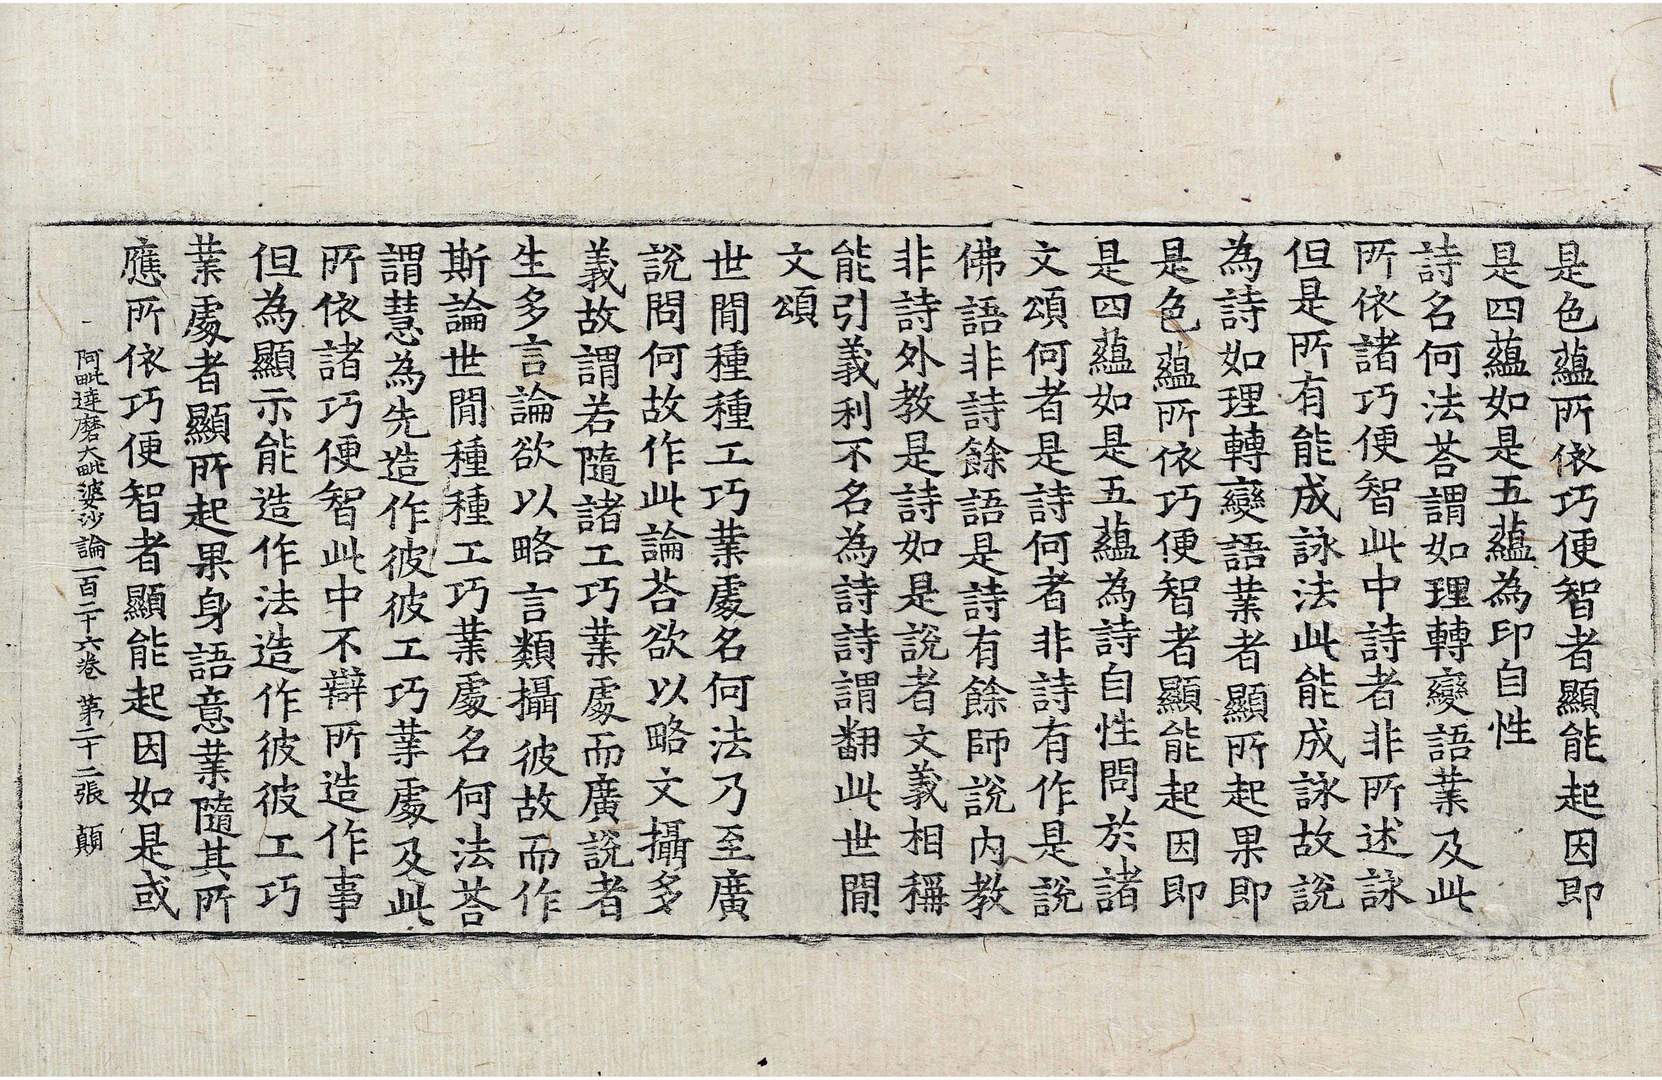 是色蘊所依巧便智者顯能起因即
是四蘊如是五蘊為印自性
詩名何法荅謂如理轉變語業及此
所依諸巧便智此中詩者非所述詠
但是所有能成詠法此能成詠故說
為詩如理轉變語業者顯所起果即
是色蘊所依巧便智者顯能起因即
是四蘊如是五蘊為詩自性問於諸
文頌何者是詩何者非詩有作是說
佛語非詩餘語是詩有餘師說内教
非詩外教是詩如是說者文義相稱
能引義利不名為詩詩謂翻此世閒
文頌
世閒種種工巧業處名何法乃至廣
說問何故作此論荅欲以略文攝多
義故謂若隨諸工巧業處而廣說者
生多言論欲以略言類攝彼故而作
斯論世閒種種工巧業處名何法荅
謂慧為先造作彼彼工巧業處及此
所依諸巧便智此中不辯所造作事
但為顯示能造作法造作彼彼工巧
業處者顯所起果身語意業隨其所
應所依巧便智者顯能起因如是或
阿毗達磨大毗婆沙論一百二十六卷 第二十二張 顛